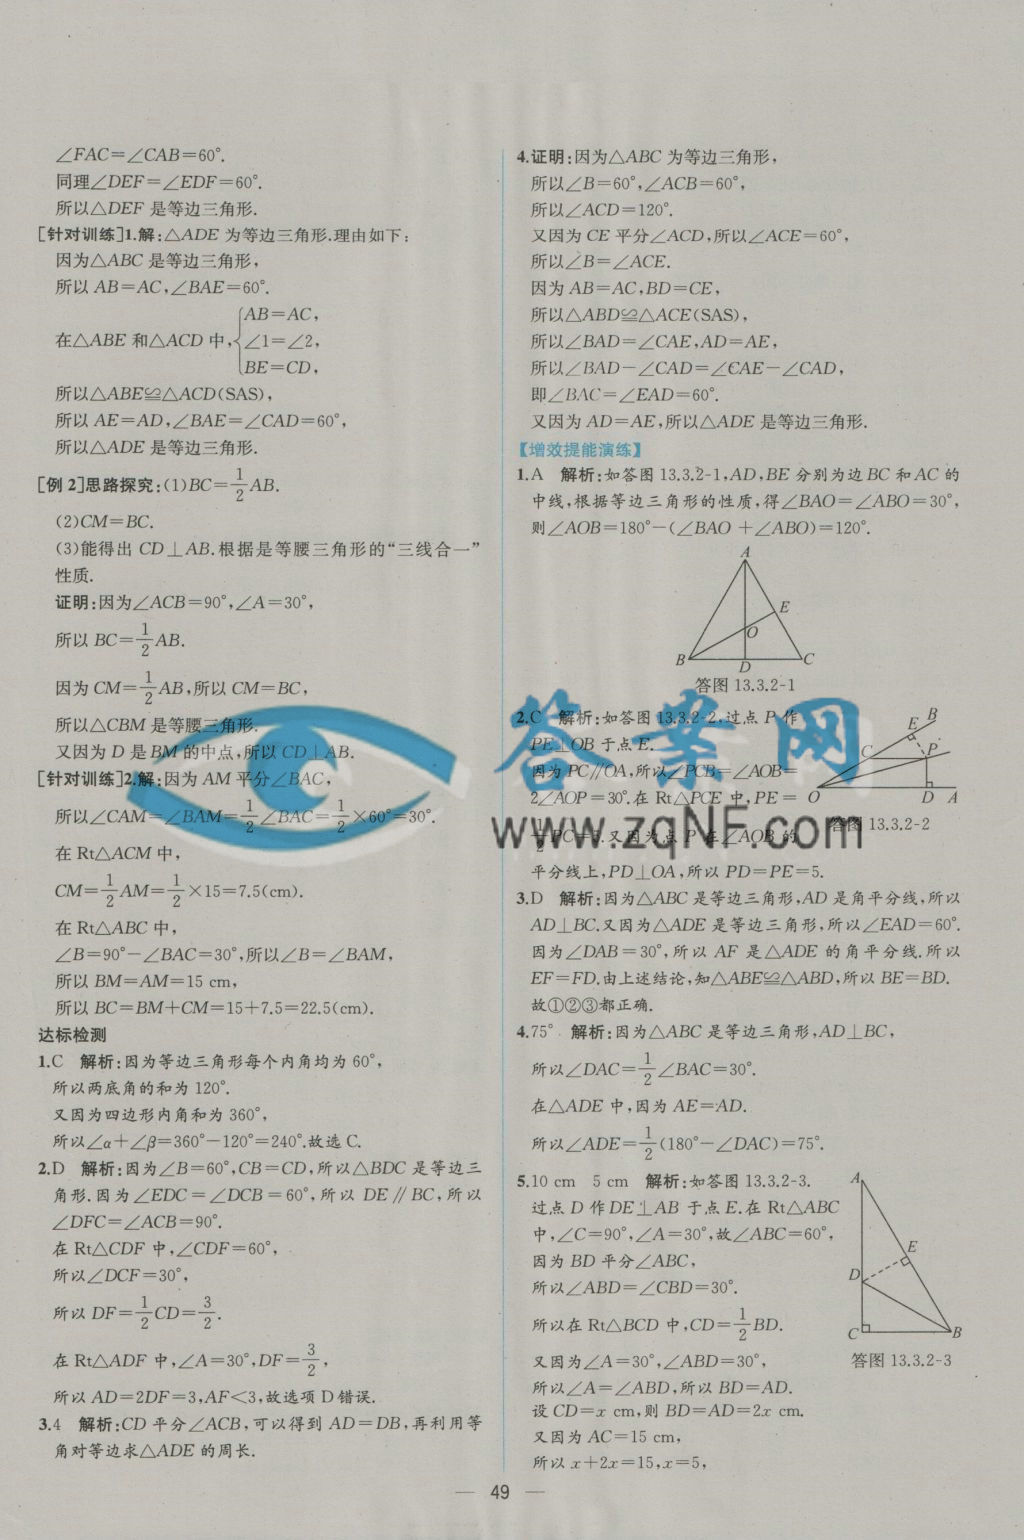 ∠FAC=∠CAB=60°.
同理∠DEF=∠EDF=60°.
所以△DEF 是等边三角形.
[针对训练]1.解:△ADE 为等边三角形.理由如下:
因为△ABC 是等边三角形,
所以 AB=AC,∠BAE=60°.
在△ABE 和△ACD 中,{AB=AC,
∠1=∠2,
BE=CD,
所以△ABE≌△ACD(SAS),
所以 AE=AD,∠BAE=∠CAD=60°,
所以△ADE 是等边三角形.
[例 2]思路探究:(1)BC=1/2AB.
(2)CM=BC.
(3)能得出 CD⊥AB.根据是等腰三角形的“三线合一”
性质.
证明:因为∠ACB=90°,∠A=30°,
所以 BC=1/2AB.
因为 CM=1/2AB,所以 CM=BC,
所以△CBM 是等腰三角形.
又因为 D 是 BM 的中点,所以 CD⊥AB.
[针对训练]2.解:因为 AM 平分∠BAC,
所以∠CAM=∠BAM=1/2∠BAC=1/2×60°=30°.
在 Rt△ACM 中,
CM=1/2AM=1/2×15=7.5(cm).
在 Rt△ABC 中,
∠B=90°-∠BAC=30°,所以∠B=∠BAM,
所以 BM=AM=15 cm,
所以 BC=BM+CM=15+7.5=22.5(cm).
达标检测
1.C 解析:因为等边三角形每个内角均为 60°,
所以两底角的和为 120°.
又因为四边形内角和为 360°,
所以∠α+∠β=360°-120°=240°.故选 C.
2.D 解析:因为∠B=60°,CB=CD,所以△BDC 是等边三
角形.因为∠EDC=∠DCB=60°,所以 DE∥BC,所以
∠DFC=∠ACB=90°.
在 Rt△CDF 中,∠CDF=60°,
所以∠DCF=30°,
所以 DF=1/2CD=3/2.
在 Rt△ADF 中,∠A=30°,DF=3/2,
所以 AD=2DF=3,AF<3,故选项 D 错误.
3.4 解析:CD 平分∠ACB,可以得到 AD=DB,再利用等
角对等边求△ADE 的周长.
4.证明:因为△ABC 为等边三角形,
所以∠B=60°,∠ACB=60°,
所以∠ACD=120°.
又因为 CE 平分∠ACD,所以∠ACE=60°,
所以∠B=∠ACE.
因为 AB=AC,BD=CE,
所以△ABD≌△ACE(SAS),
所以∠BAD=∠CAE,AD=AE,
所以∠BAD-∠CAD=∠CAE-∠CAD,
即∠BAC=∠EAD=60°.
又因为 AD=AE,所以△ADE 是等边三角形.
【增效提能演练】
1.A 解析:如答图 13.3.2-1,AD,BE 分别为边 BC 和 AC 的
中线,根据等边三角形的性质,得∠BAO=∠ABO=30°,
则∠AOB=180°-(∠BAO+∠ABO)=120°.
A
E
O
B
D
C
答图 13.3.2-1
2.C 解析:如答图 13.3.2-2,过点 P 作
PE⊥OB 于点 E.
因为 PC∥OA,所以∠PCB=∠AOB=
2∠AOP=30°.在 Rt△PCE 中,PE=
1/2PC=5.又因为点 P 在∠AOB 的
平分线上,PD⊥OA,所以 PD=PE=5.
B
E
C
P
O
D
A
答图 13.3.2-2
3.D 解析:因为△ABC 是等边三角形,AD 是角平分线,所以
AD⊥BC.又因为△ADE 是等边三角形,所以∠EAD=60°.
因为∠DAB=30°,所以 AF 是△ADE 的角平分线.所以
EF=FD.由上述结论,知△ABE≌△ABD,所以 BE=BD.
故①②③都正确.
4.75° 解析:因为△ABC 是等边三角形,AD⊥BC,
所以∠DAC=1/2∠BAC=30°.
在△ADE 中,因为 AE=AD.
所以∠ADE=1/2(180°-∠DAC)=75°.
5.10 cm 5 cm 解析:如答图 13.3.2-3.
过点 D 作 DE⊥AB 于点 E.在 Rt△ABC
中,∠C=90°,∠A=30°,故∠ABC=60°,
因为 BD 平分∠ABC,
所以∠ABD=∠CBD=30°.
所以在 Rt△BCD 中,CD=1/2BD.
又因为∠A=30°,∠ABD=30°,
所以∠A=∠ABD,所以 BD=AD.
设 CD=x cm,则 BD=AD=2x cm.
又因为 AC=15 cm,
所以 x+2x=15,x=5,
A
E
D
C
B
答图 13.3.2-3
答案网
www.zqNF.com
— 49 —